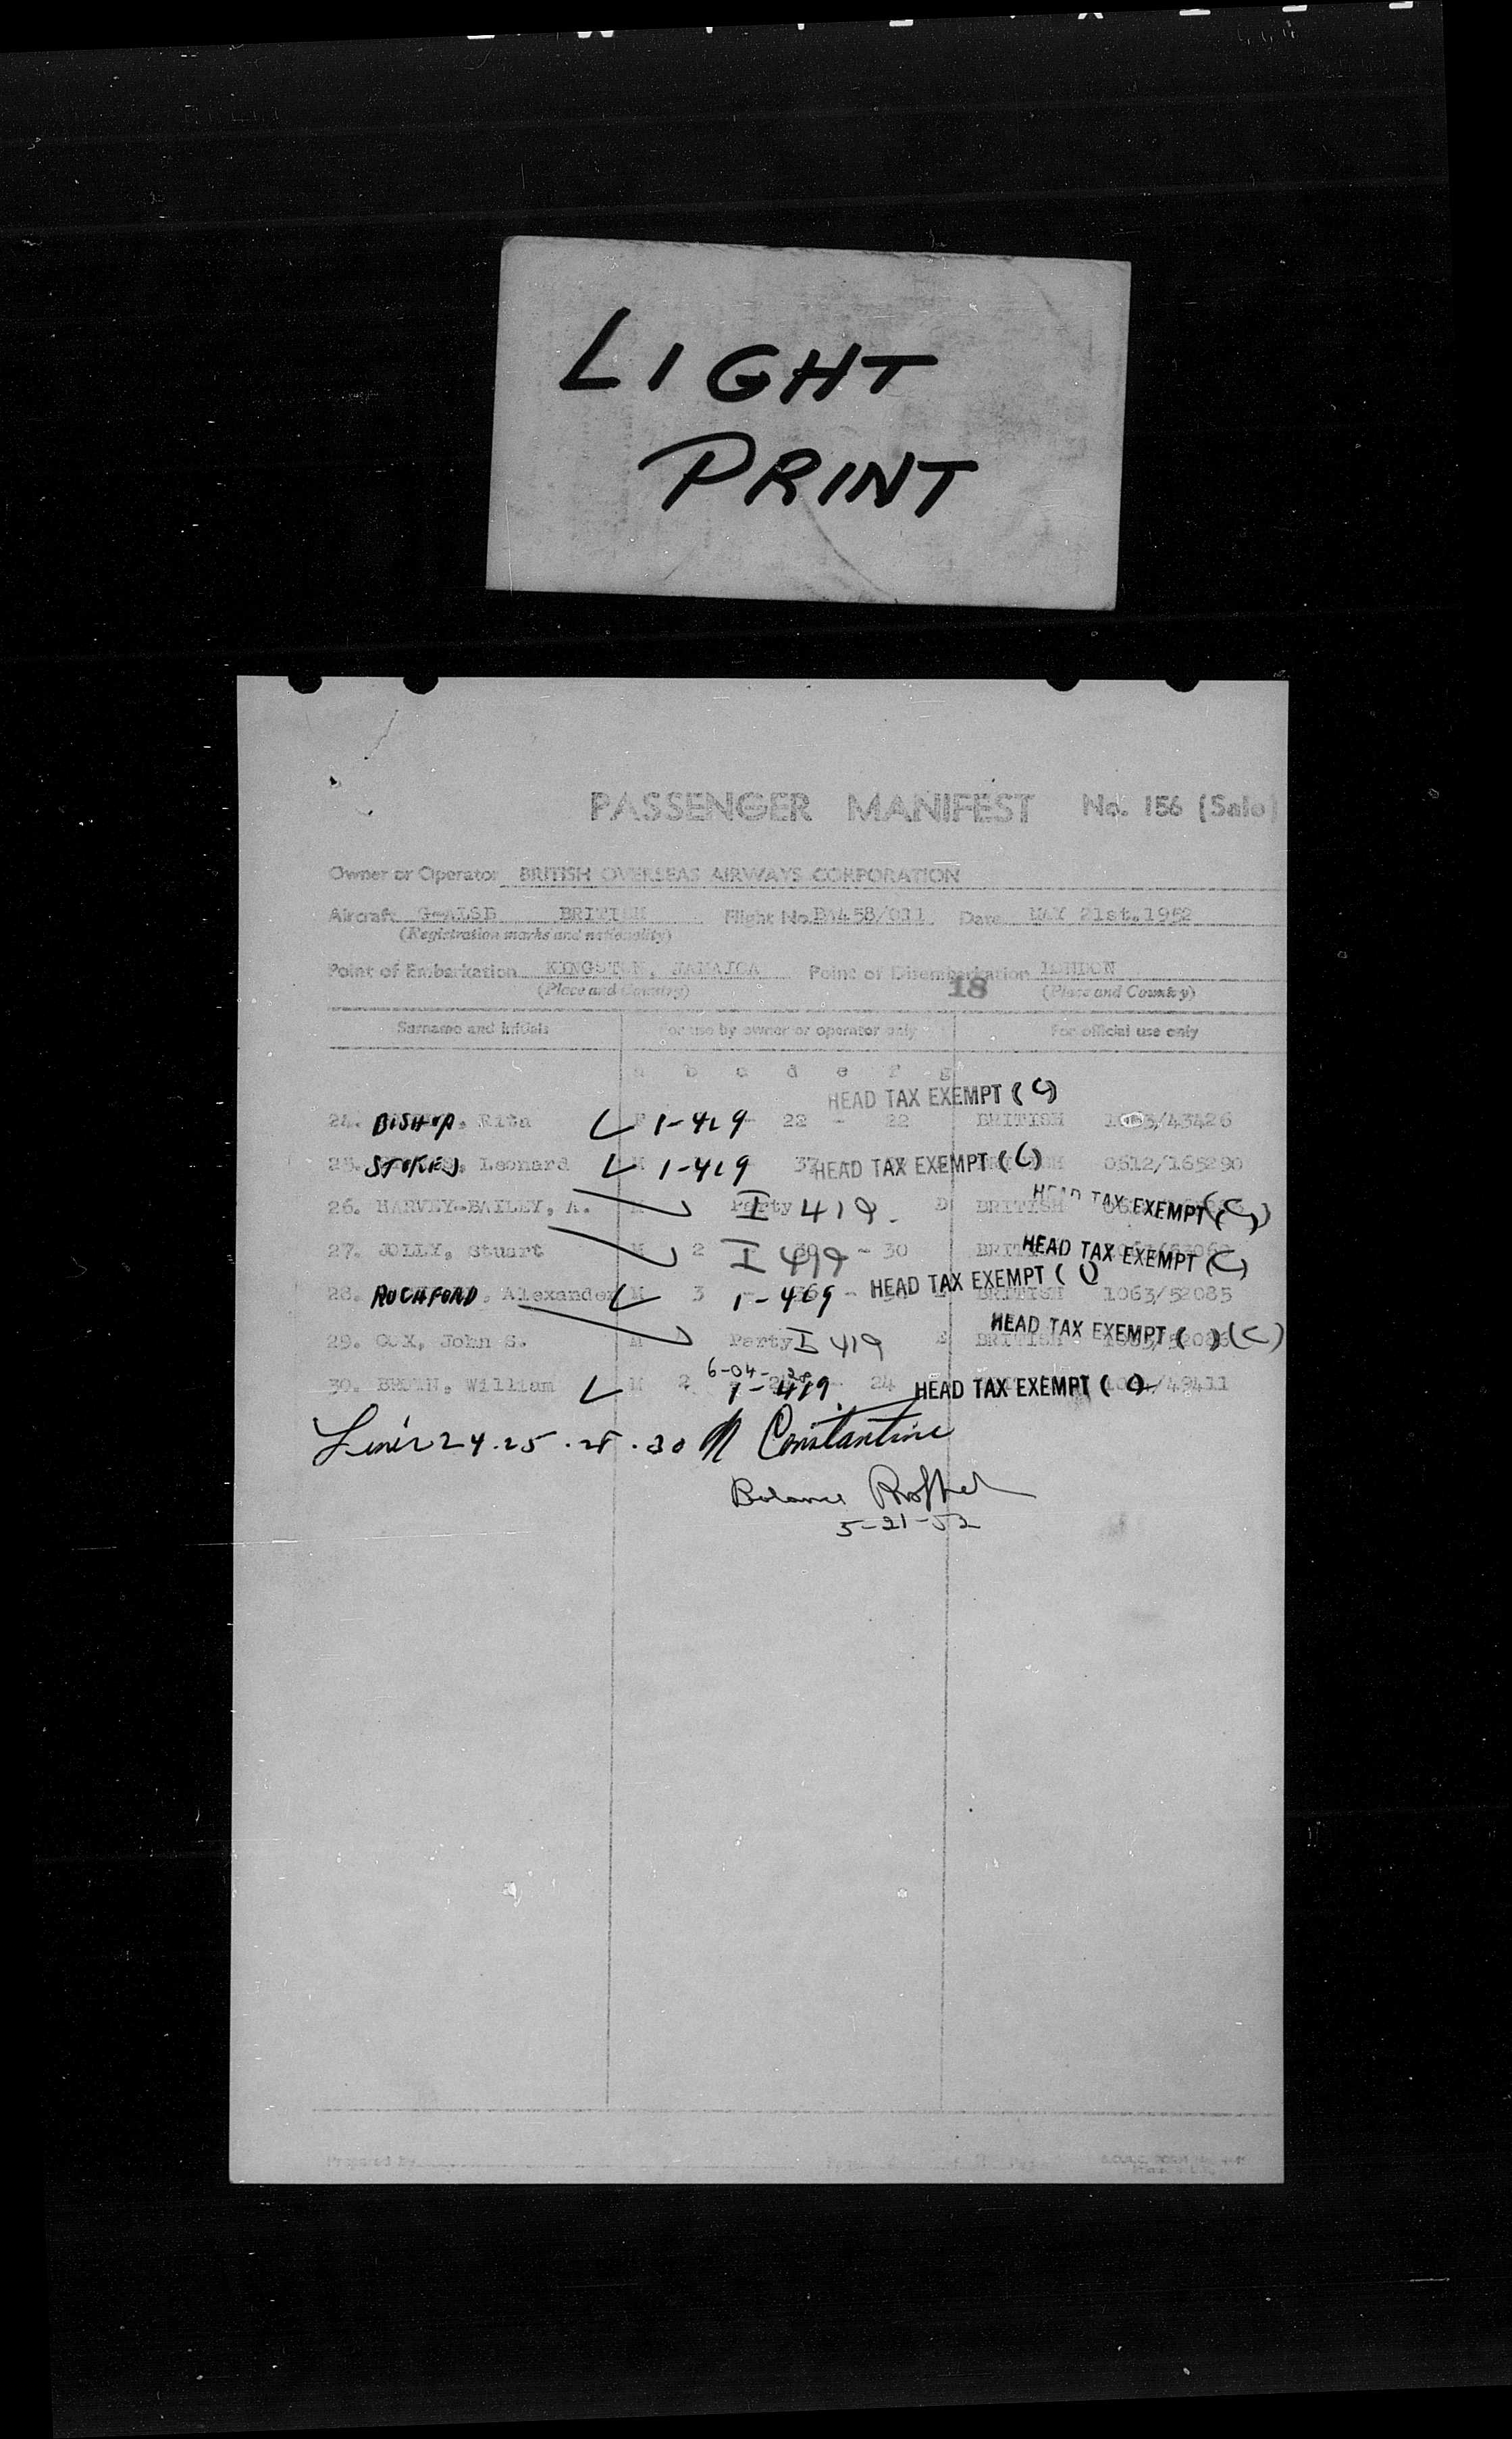 LIGHT
PRINT
PASSENGER MANIFEST No. 156 (Sale)
Owner or Operator BRITISH OVERSEAS AIRWAYS CORPORATION
Aircraft G-ALSB BRITISH Flight No. BA458/011 Date MAY 21st.1952
(Registration marks and nationality)
Point of Embarkation KINGSTON, JAMAICA Point of Disembarkation LONDON
(Place and Country) 18 (Place and Country)
Surname and initials For use by owner or operator only For official use only
a b c d e f g
HEAD TAX EXEMPT (C)
24. BISHOP, Rita F 1-419 22 - 22 BRITISH 1063/43426
25. STOKES, Leonard M 1-419 37 HEAD TAX EXEMPT (C) 0612/165290
26. HARVEY-BAILEY, A. M Party I 419. D BRITISH HEAD TAX EXEMPT (C)
27. JOLLY, Stuart M 2 I 499 - 30 HEAD TAX EXEMPT (C)
28. ROCHFORD, Alexander M 3 1-469 - HEAD TAX EXEMPT ( ) BRITISH 1063/52085
29. COX, John S. M Party I 419 BRITISH HEAD TAX EXEMPT ( ) (C)
30. BROWN, William M 2 6-04- 1-419 24 HEAD TAX EXEMPT ( ) /49411
Lines 24.25.28.30 M Constantine
Balance
5-21-52
Prepared by